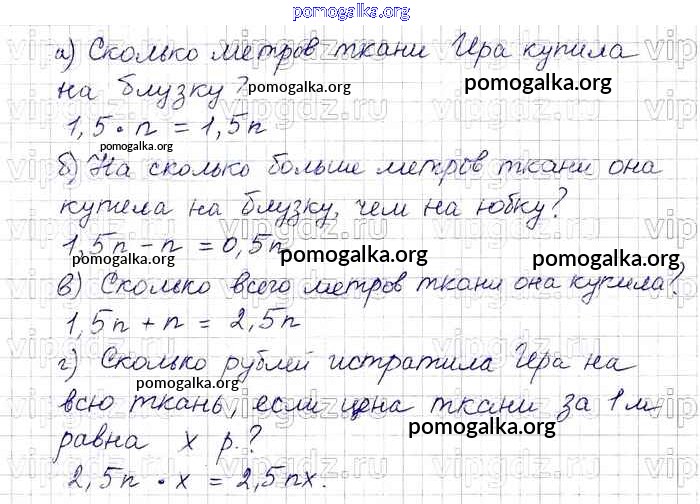 pomogalka.org
а) Сколько метров ткани Ира купила
на блузку?
pomogalka.org
pomogalka.org
1,5 · n = 1,5n
pomogalka.org
б) На сколько больше метров ткани она
купила на блузку, чем на юбку?
1,5n - n = 0,5n
pomogalka.org
pomogalka.org
pomogalka.org
в) Сколько всего метров ткани она купила?
1,5n + n = 2,5n
г) Сколько рублей истратила Ира на
pomogalka.org
всю ткань, если цена ткани за 1 м
pomogalka.org
равна x р.?
2,5n · x = 2,5nx.